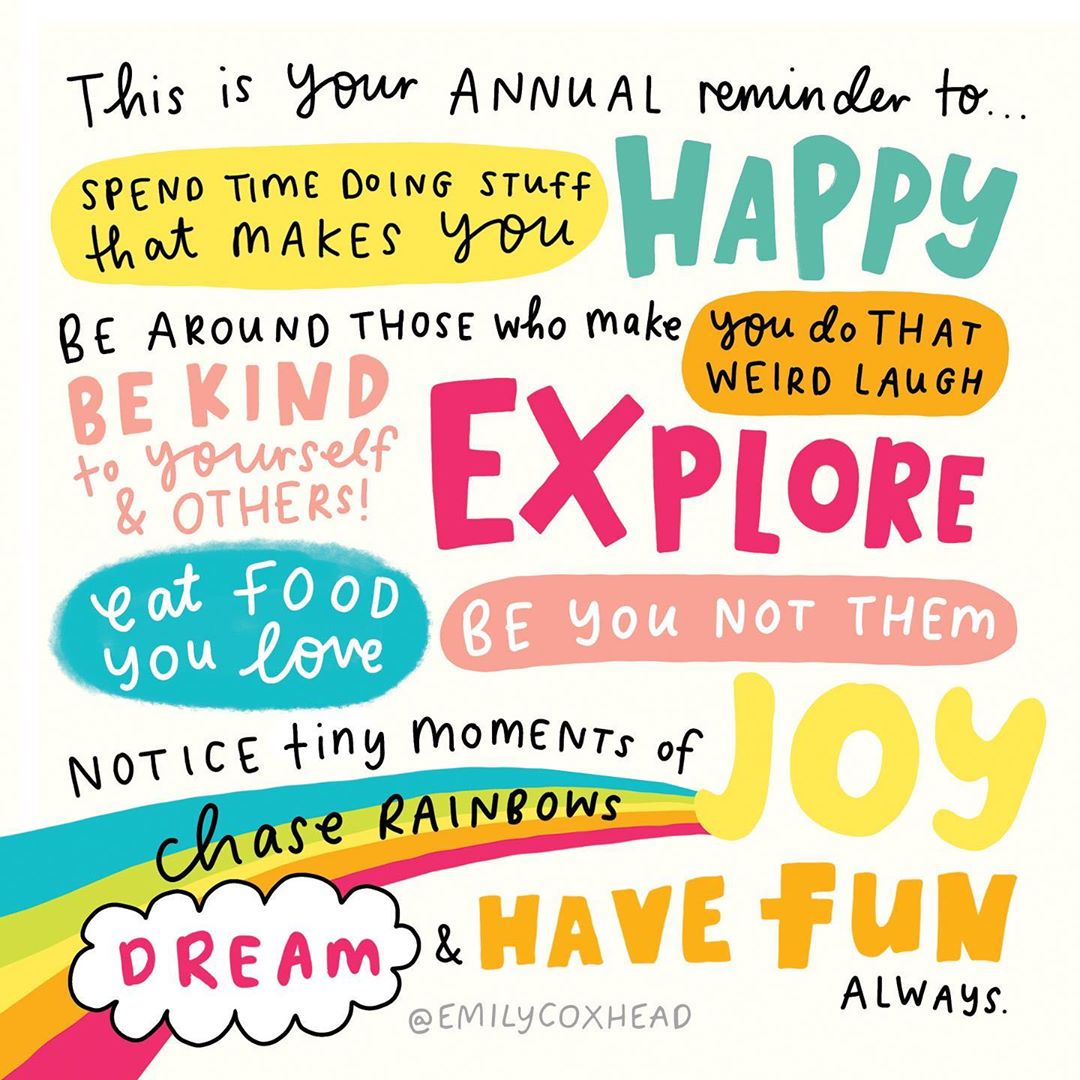 This is your ANNUAL reminder to...
SPEND TIME DOING STUFF
that MAKES you HAPPY
BE AROUND THOSE who make you do THAT
WEIRD LAUGH
BE KIND
to yourself
& OTHERS!
EXPLORE
eat FOOD
you love
BE you NOT THEM
NOTICE tiny MOMENTS of JOY
chase RAINBOWS
DREAM & HAVE FUN
ALWAYS.
@EMILYCOXHEAD